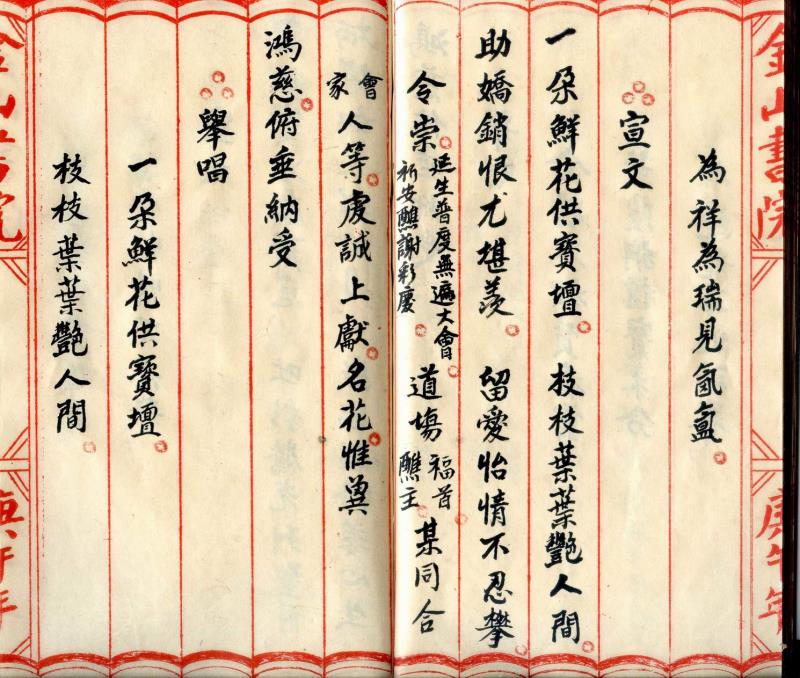 金山書院
庚午年
為祥為瑞見氤氳
宣文
一朵鮮花供寶壇 枝枝葉葉艷人間
助嬌銷恨尤堪羨 留愛怡情不忍攀
令崇 延生普度無遮大會 祈安醮謝彩慶 道場 福首 醮主 某同合
會家人等虔誠上獻名花惟冀
鴻慈俯垂納受
舉唱
一朵鮮花供寶壇
枝枝葉葉艷人間
金山書院
庚午年